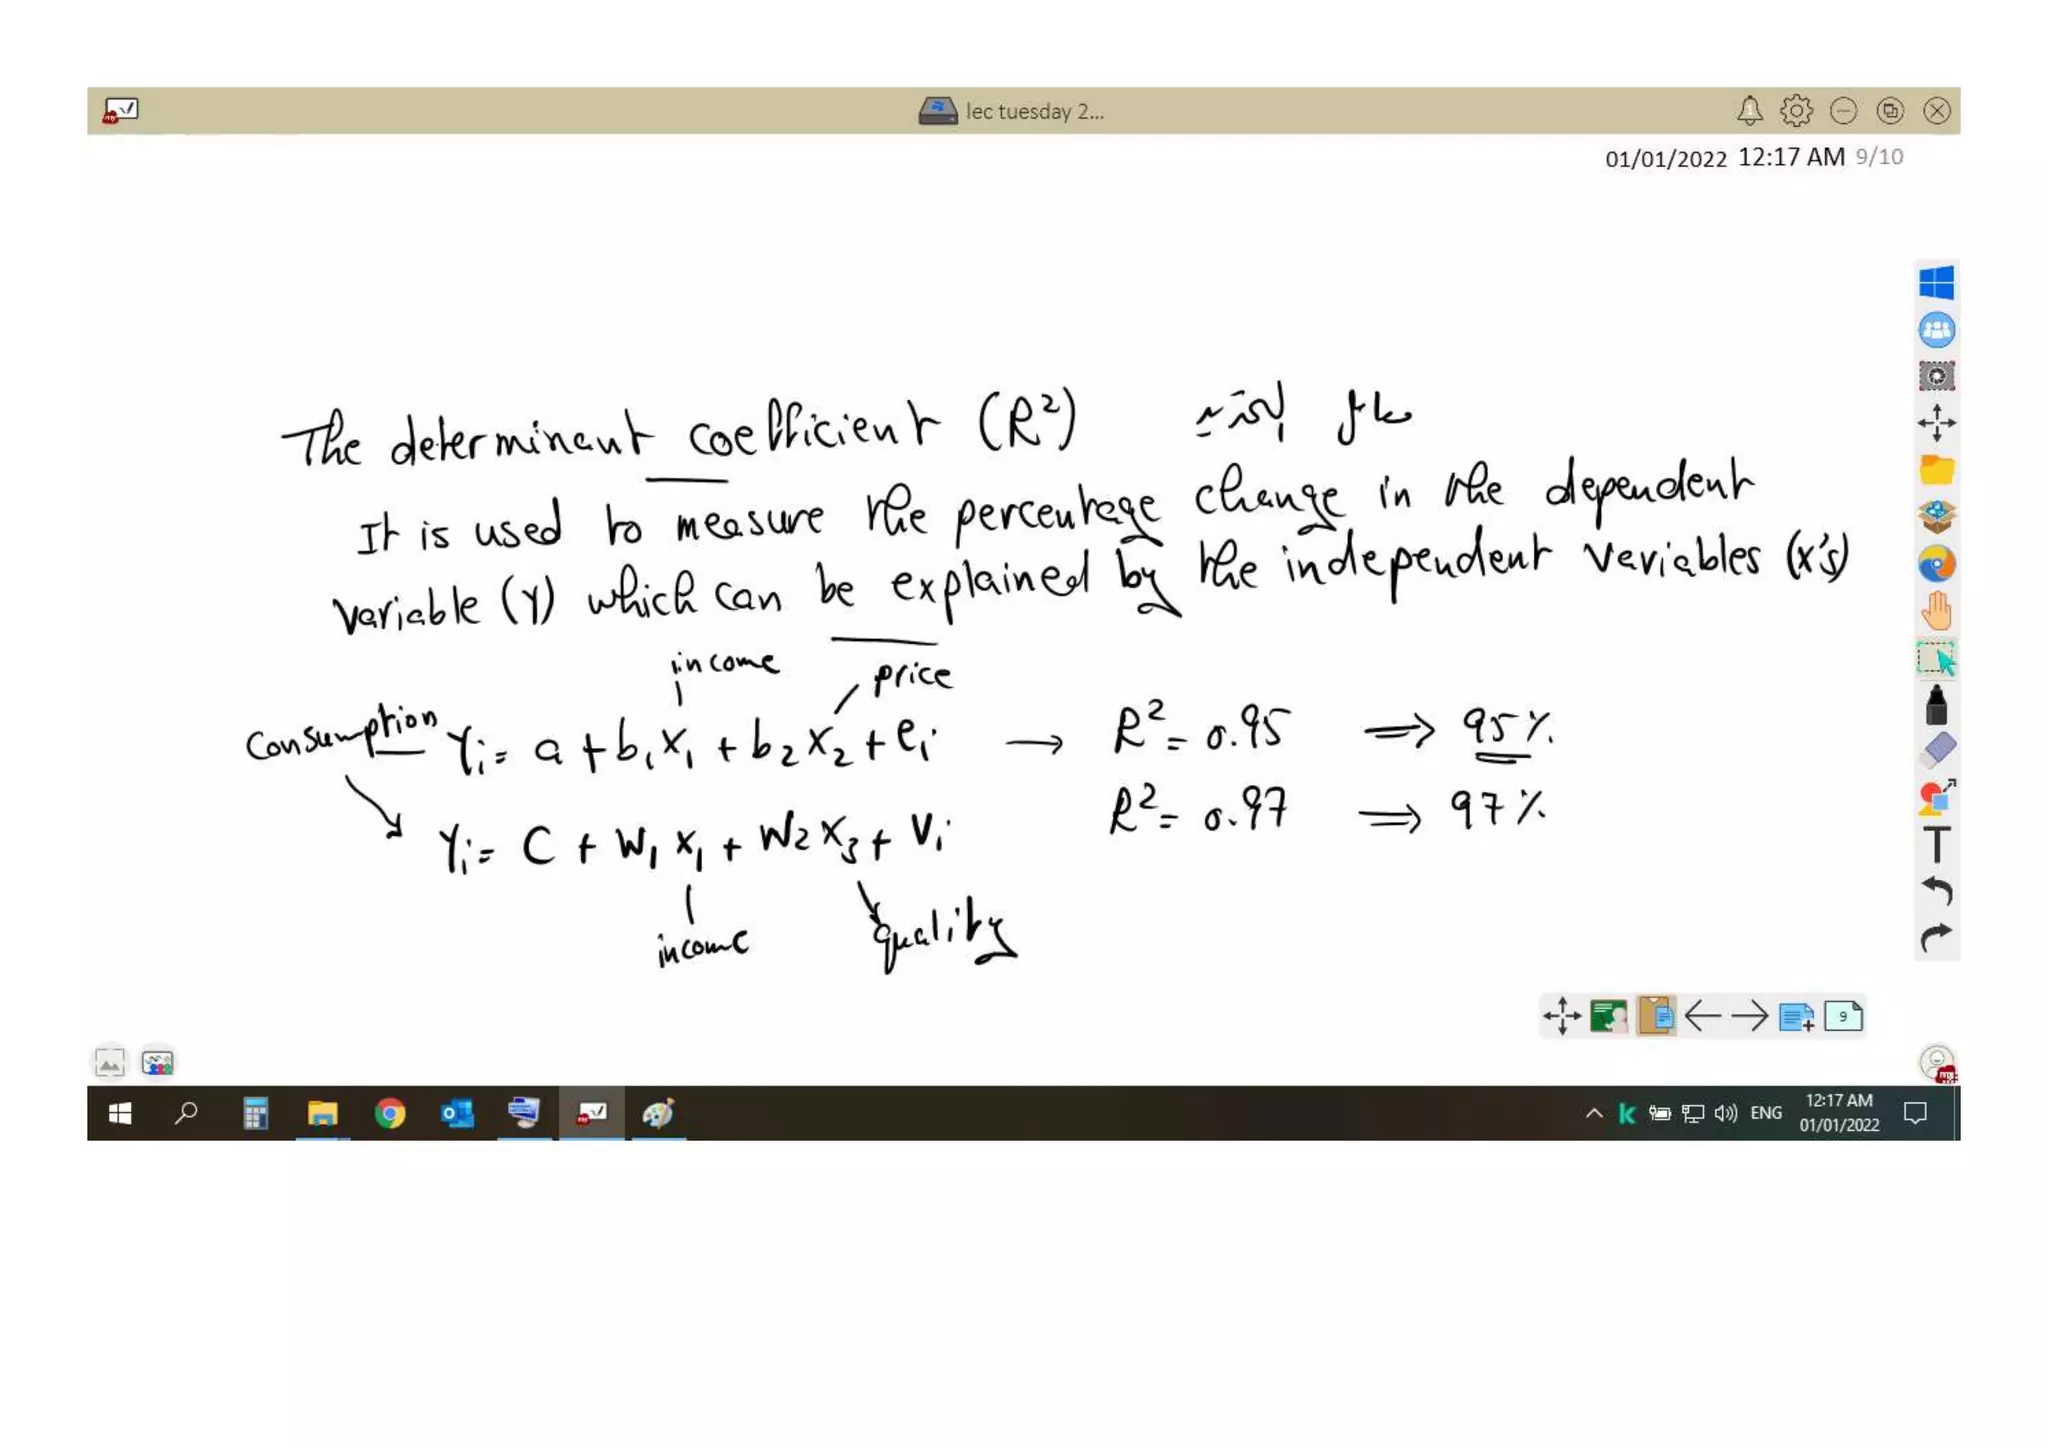 lec tuesday 2...
01/01/2022 12:17 AM 9/10
The determinant coefficient (R²) معامل التحديد
It is used to measure the percentage change in the dependent
variable (Y) which can be explained by the independent variables (X's)
income price
Consumption Yi = a + b₁X₁ + b₂X₂ + ei → R² = 0.95 ⇒ 95%
Yi = C + W₁X₁ + W₂X₃ + Vi R² = 0.97 ⇒ 97%
income quality
9
ENG 12:17 AM
01/01/2022